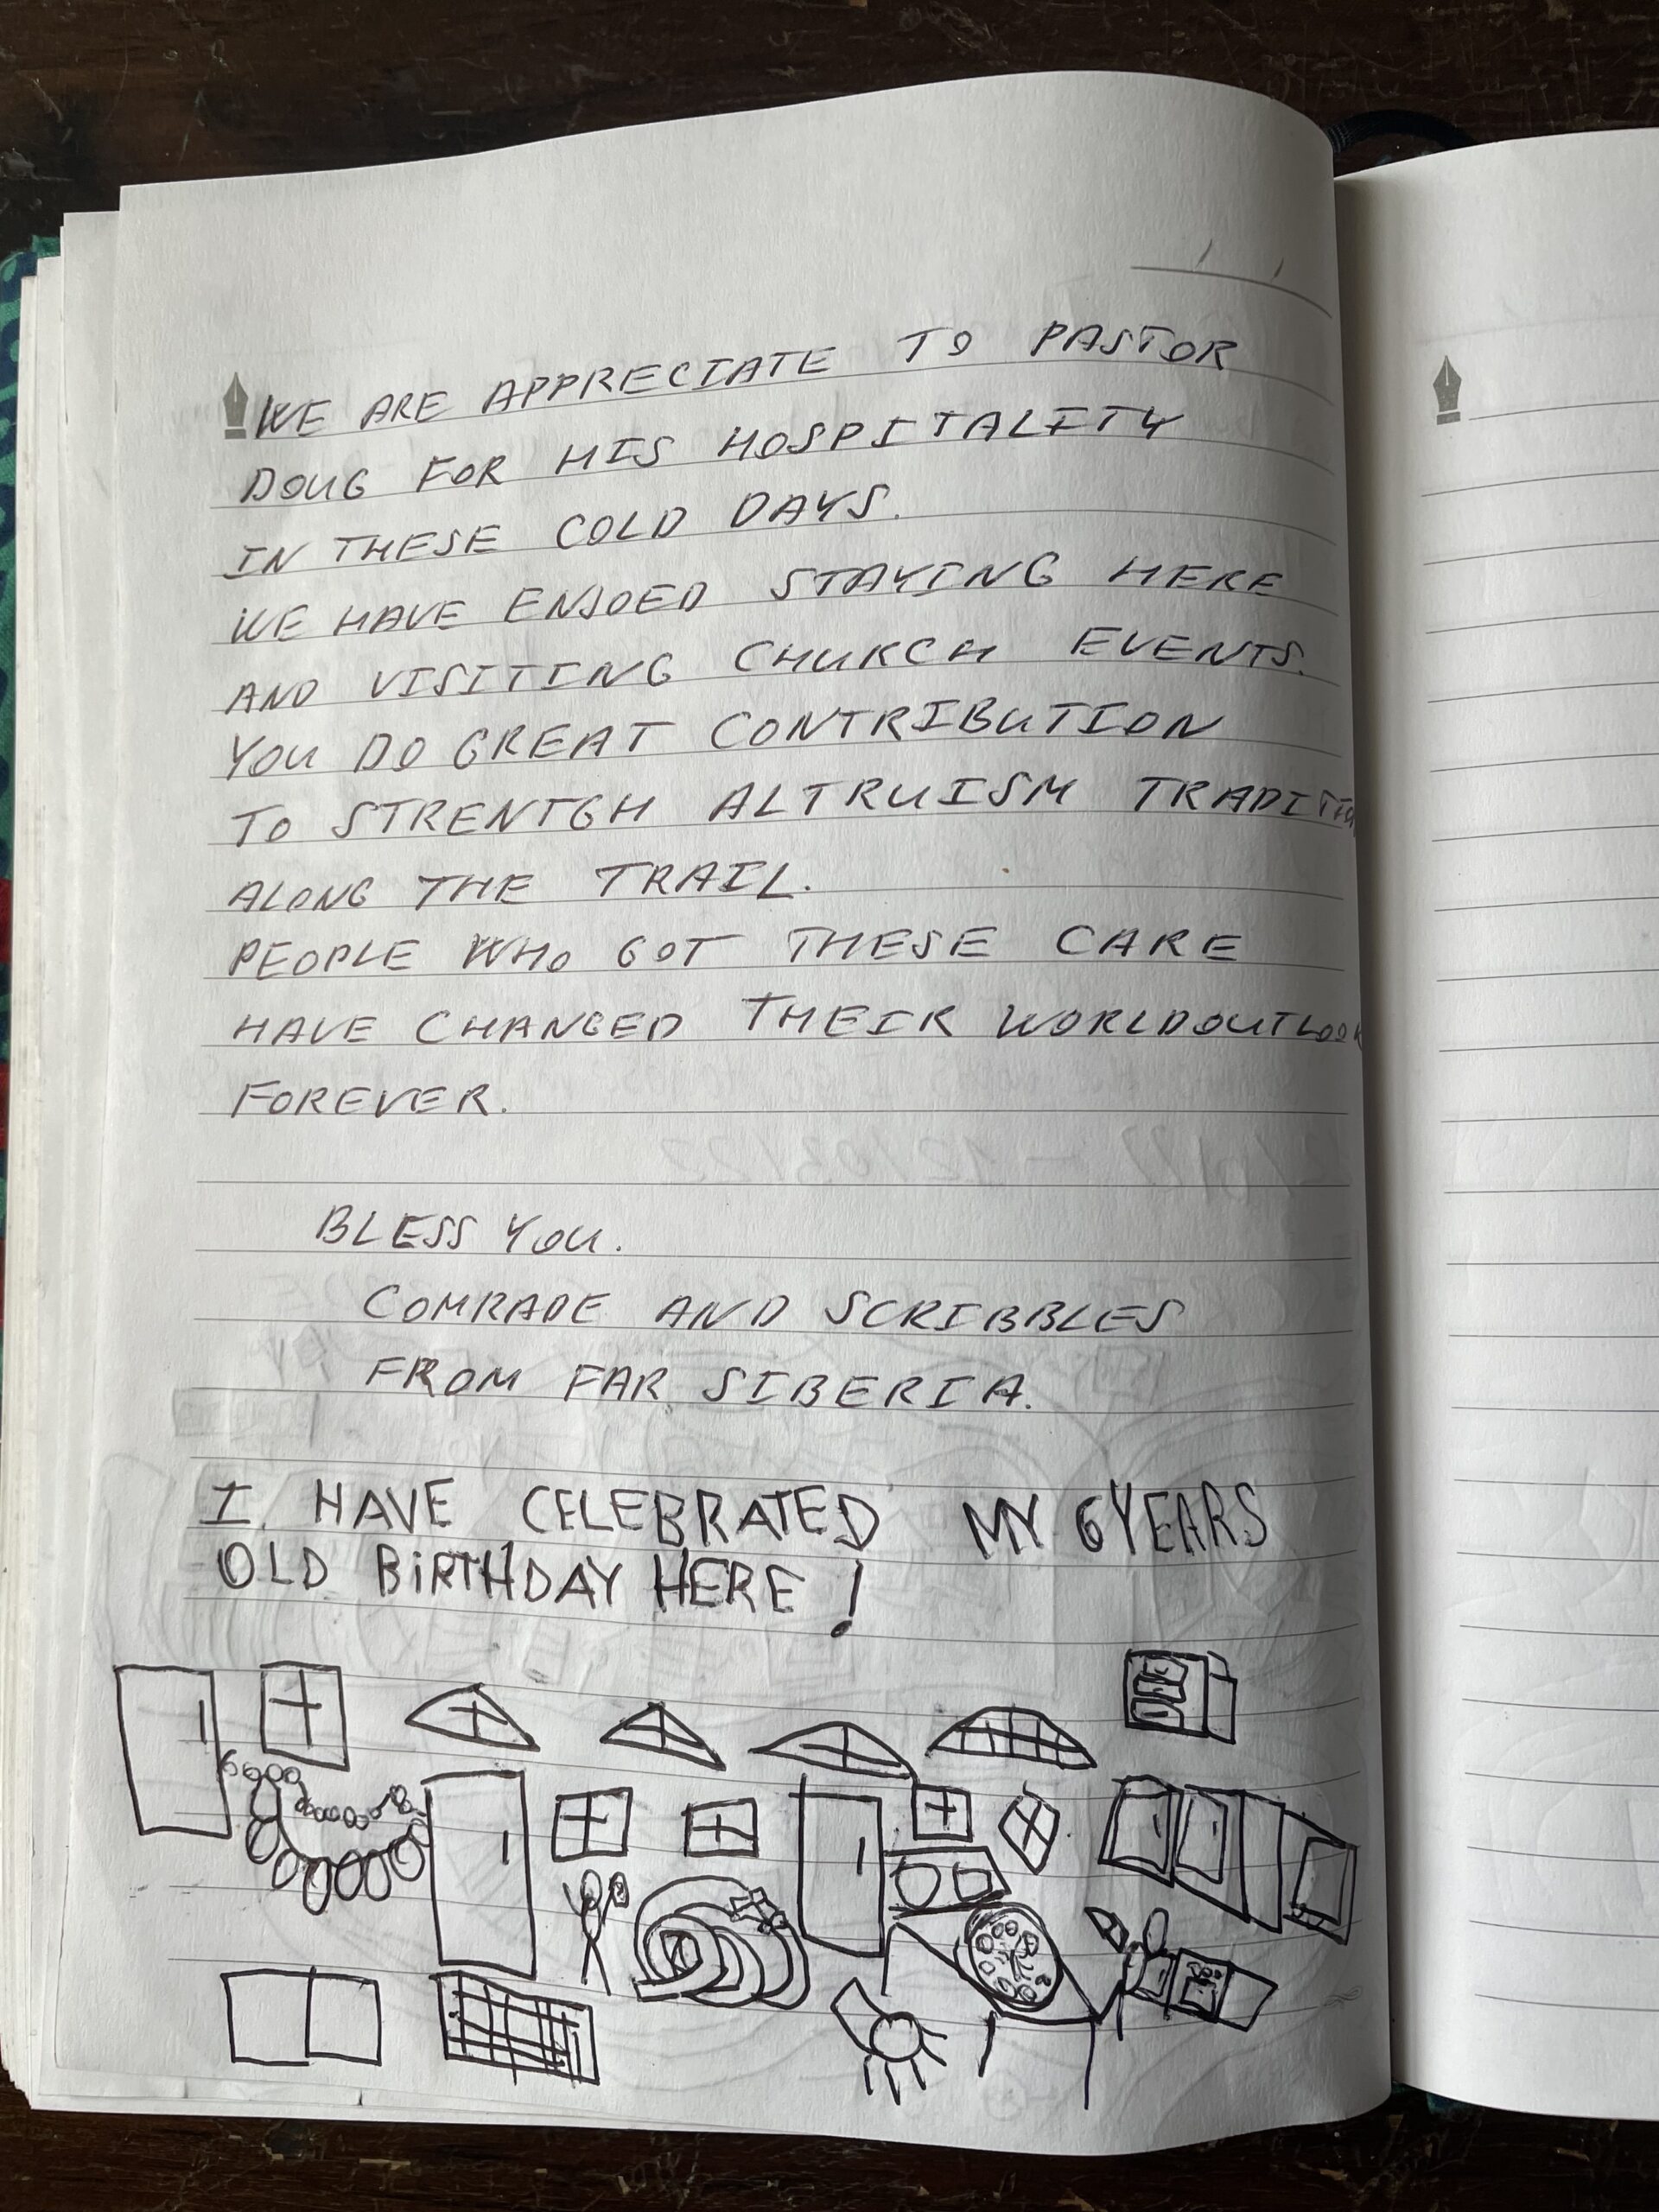 WE ARE APPRECIATE TO PASTOR
DOUG FOR HIS HOSPITALITY
IN THESE COLD DAYS.
WE HAVE ENJOED STAYING HERE
AND VISITING CHURCH EVENTS.
YOU DO GREAT CONTRIBUTION
TO STRENTGH ALTRUISM TRADITION
ALONG THE TRAIL.
PEOPLE WHO GOT THESE CARE
HAVE CHANGED THEIR WORLDOUTLOOK
FOREVER.
BLESS YOU.
COMRADE AND SCRIBBLES
FROM FAR SIBERIA.
I HAVE CELEBRATED MY 6 YEARS
OLD BiRTHDAY HERE!